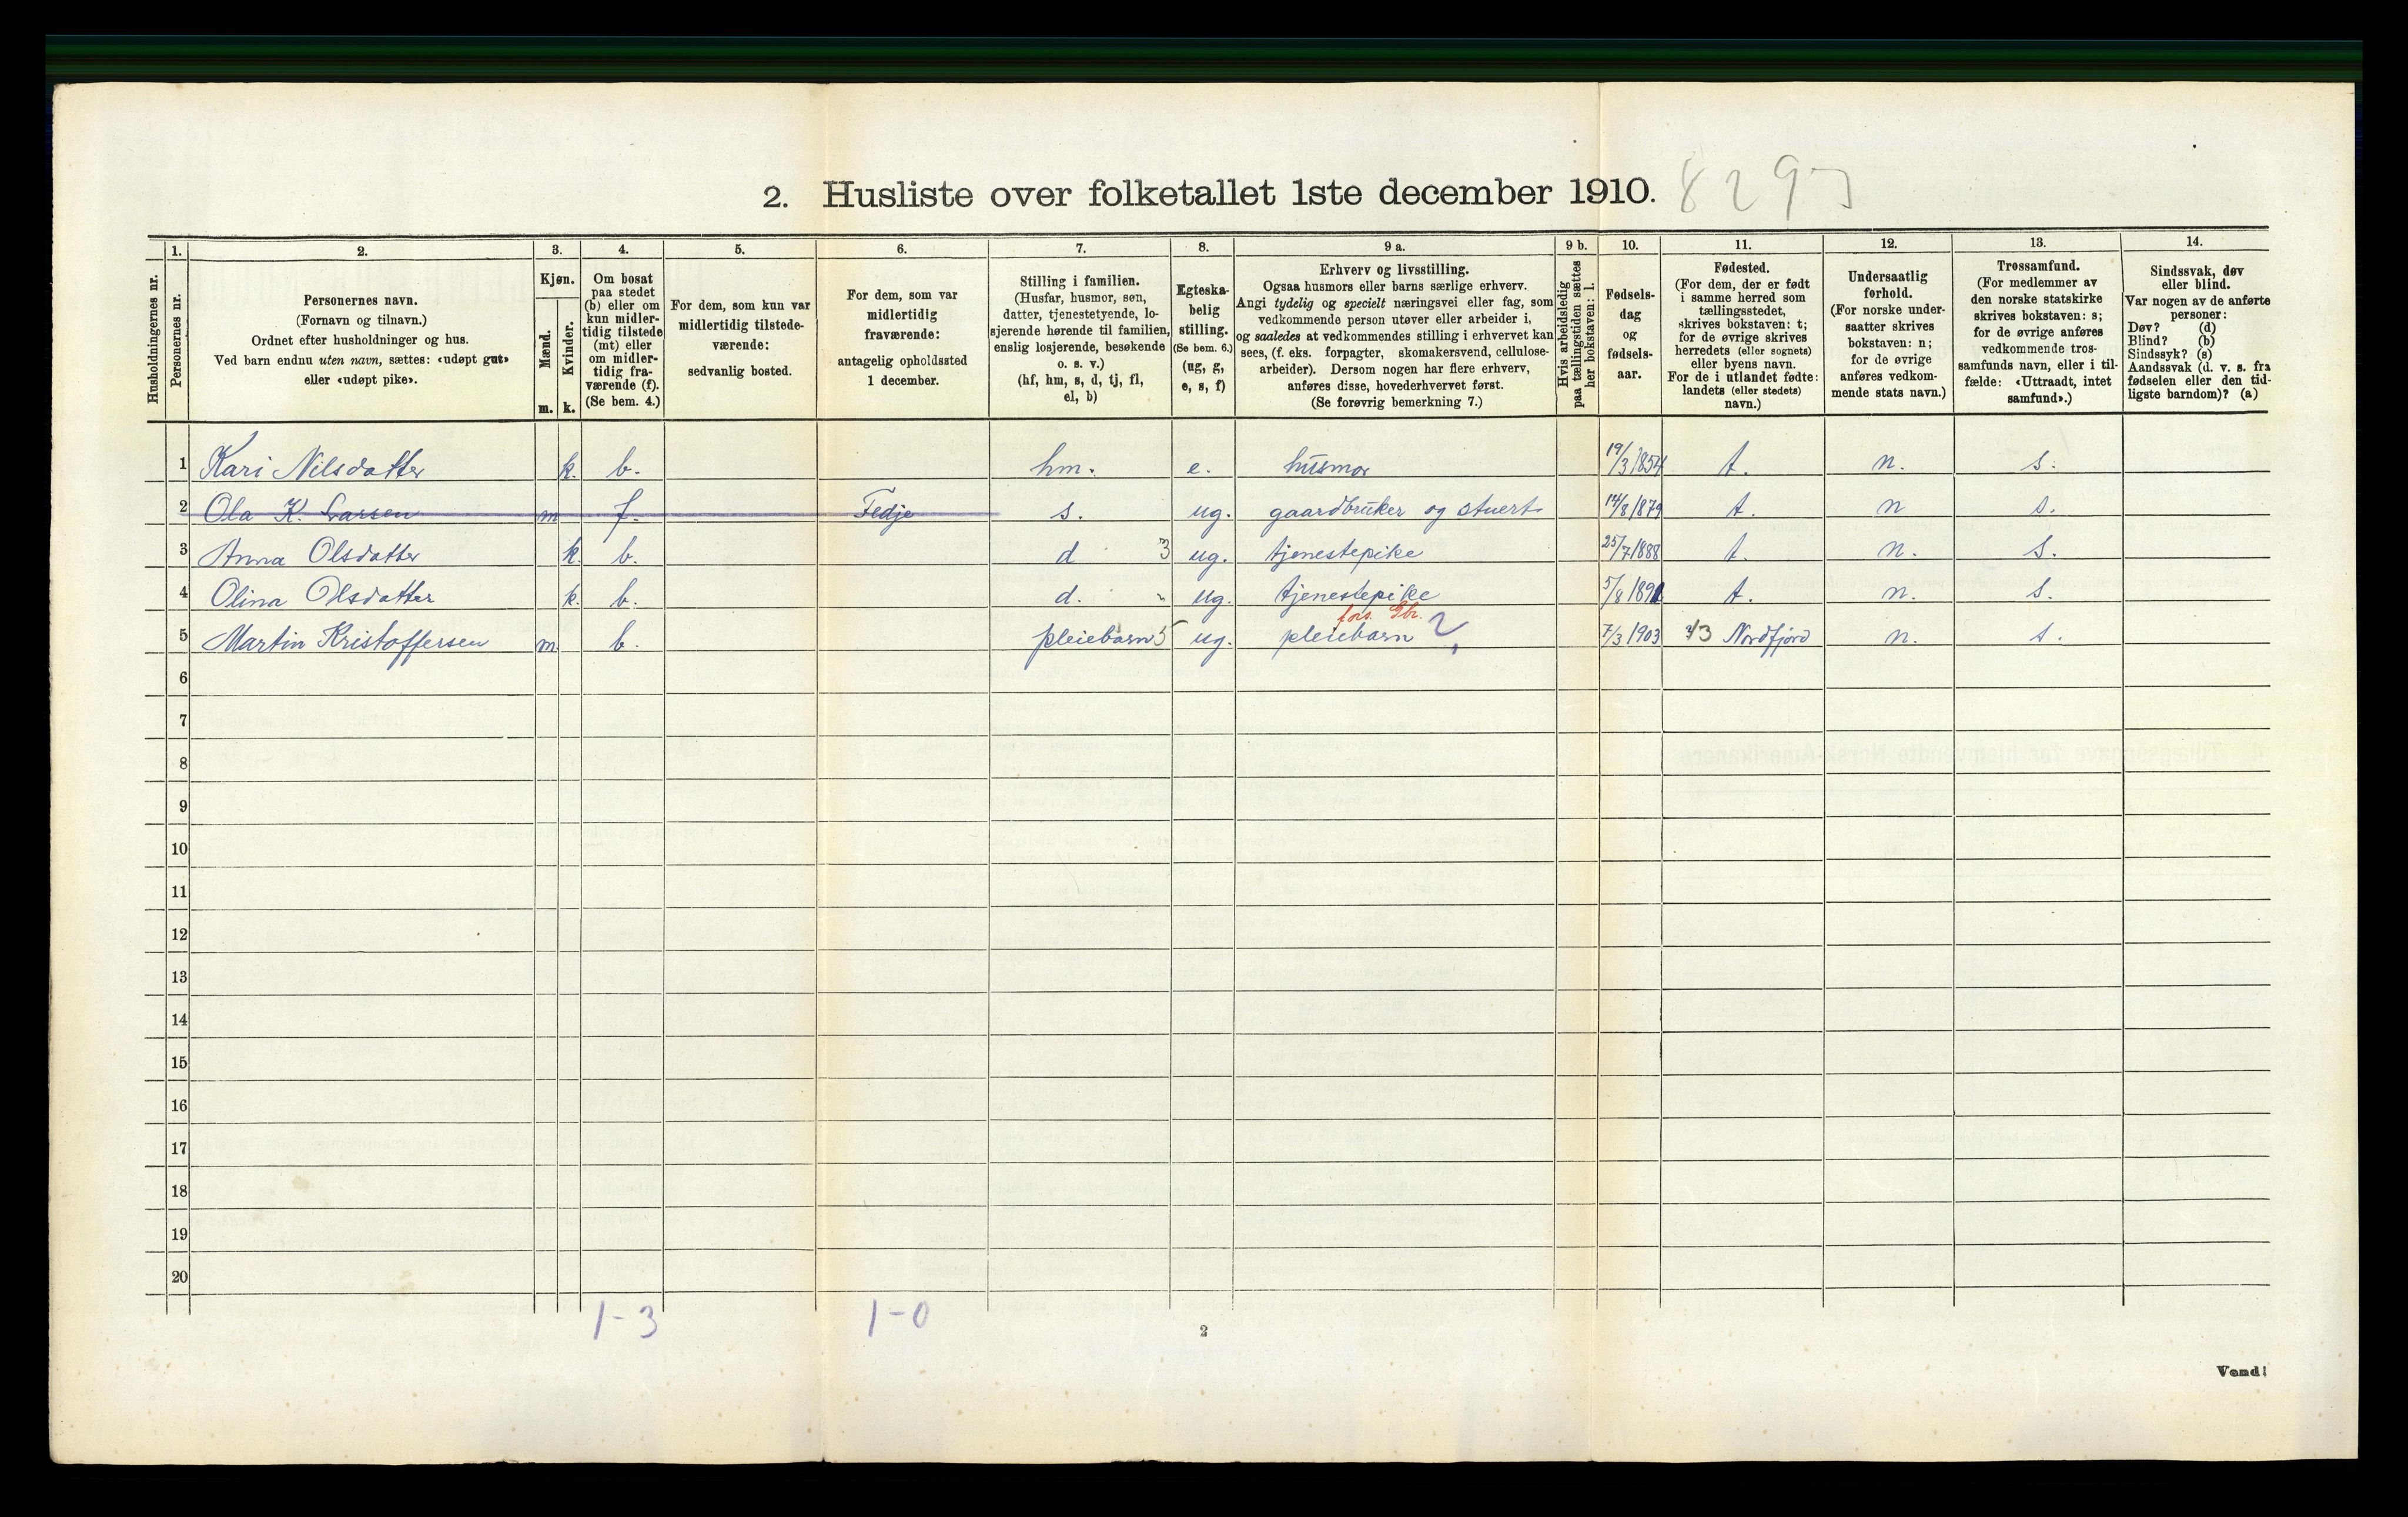 2. Husliste over folketallet 1ste december 1910. 8297
Husholdningernes nr.
1.
Personernes nr.
2.
Personernes navn.
(Fornavn og tilnavn.)
Ordnet efter husholdninger og hus.
Ved barn endnu uten navn, sættes: «udøpt gut»
eller «udøpt pike».
3.
Kjøn.
Mænd.
m.
Kvinder.
k.
4.
Om bosat
paa stedet
(b) eller om
kun midler-
tidig tilstede
(mt) eller
om midler-
tidig fra-
værende (f).
(Se bem. 4.)
5.
For dem, som kun var
midlertidig tilstede-
værende:
sedvanlig bosted.
6.
For dem, som var
midlertidig
fraværende:
antagelig opholdssted
1 december.
7.
Stilling i familien.
(Husfar, husmor, søn,
datter, tjenestetyende, lo-
sjerende hørende til familien,
enslig losjerende, besøkende
o. s. v.)
(hf, hm, s, d, tj, fl,
el, b)
8.
Egteska-
belig
stilling.
(Se bem. 6.)
(ug, g,
e, s, f)
9 a.
Erhverv og livsstilling.
Ogsaa husmors eller barns særlige erhverv.
Angi tydelig og specielt næringsvei eller fag, som
vedkommende person utøver eller arbeider i,
og saaledes at vedkommendes stilling i erhvervet kan
sees, (f. eks. forpagter, skomakersvend, cellulose-
arbeider). Dersom nogen har flere erhverv,
anføres disse, hovederhvervet først.
(Se forøvrig bemerkning 7.)
9 b.
Hvis arbeidsledig
paa tællingstiden sættes
her bokstaven: l.
10.
Fødsels-
dag
og
fødsels-
aar.
11.
Fødested.
(For dem, der er født
i samme herred som
tællingsstedet,
skrives bokstaven: t;
for de øvrige skrives
herredets (eller sognets)
eller byens navn.
For de i utlandet fødte:
landets (eller stedets)
navn.)
12.
Undersaatlig
forhold.
(For norske under-
saatter skrives
bokstaven: n;
for de øvrige
anføres vedkom-
mende stats navn.)
13.
Trossamfund.
(For medlemmer av
den norske statskirke
skrives bokstaven: s;
for de øvrige anføres
vedkommende tros-
samfunds navn, eller i til-
fælde: «Uttraadt, intet
samfund».)
14.
Sindssvak, døv
eller blind.
Var nogen av de anførte
personer:
Døv? (d)
Blind? (b)
Sindssyk? (s)
Aandssvak (d. v. s. fra
fødselen eller den tid-
ligste barndom)? (a)
1 Kari Nilsdatter k. b. hm. e. husmor 19/3 1854 t. n. s.
2 Ola K. Larsen m f. Fedje s. ug. gaardbruker og stuert 14/8 1879 t. n s.
3 Anna Olsdatter k. b. d 3 ug. tjenestepike 25/7 1888 t. n. s.
4 Olina Olsdatter k. b. d. " ug. tjenestepike 5/8 1891 t. n. s.
fors. Gbr.
5 Martin Kristoffersen m. b. pleiebarn 5 ug. pleiebarn 2 7/3 1903 Nordfjord n. s.
6
7
8
9
10
11
12
13
14
15
16
17
18
19
20
1-3 1-0
2
Vend!